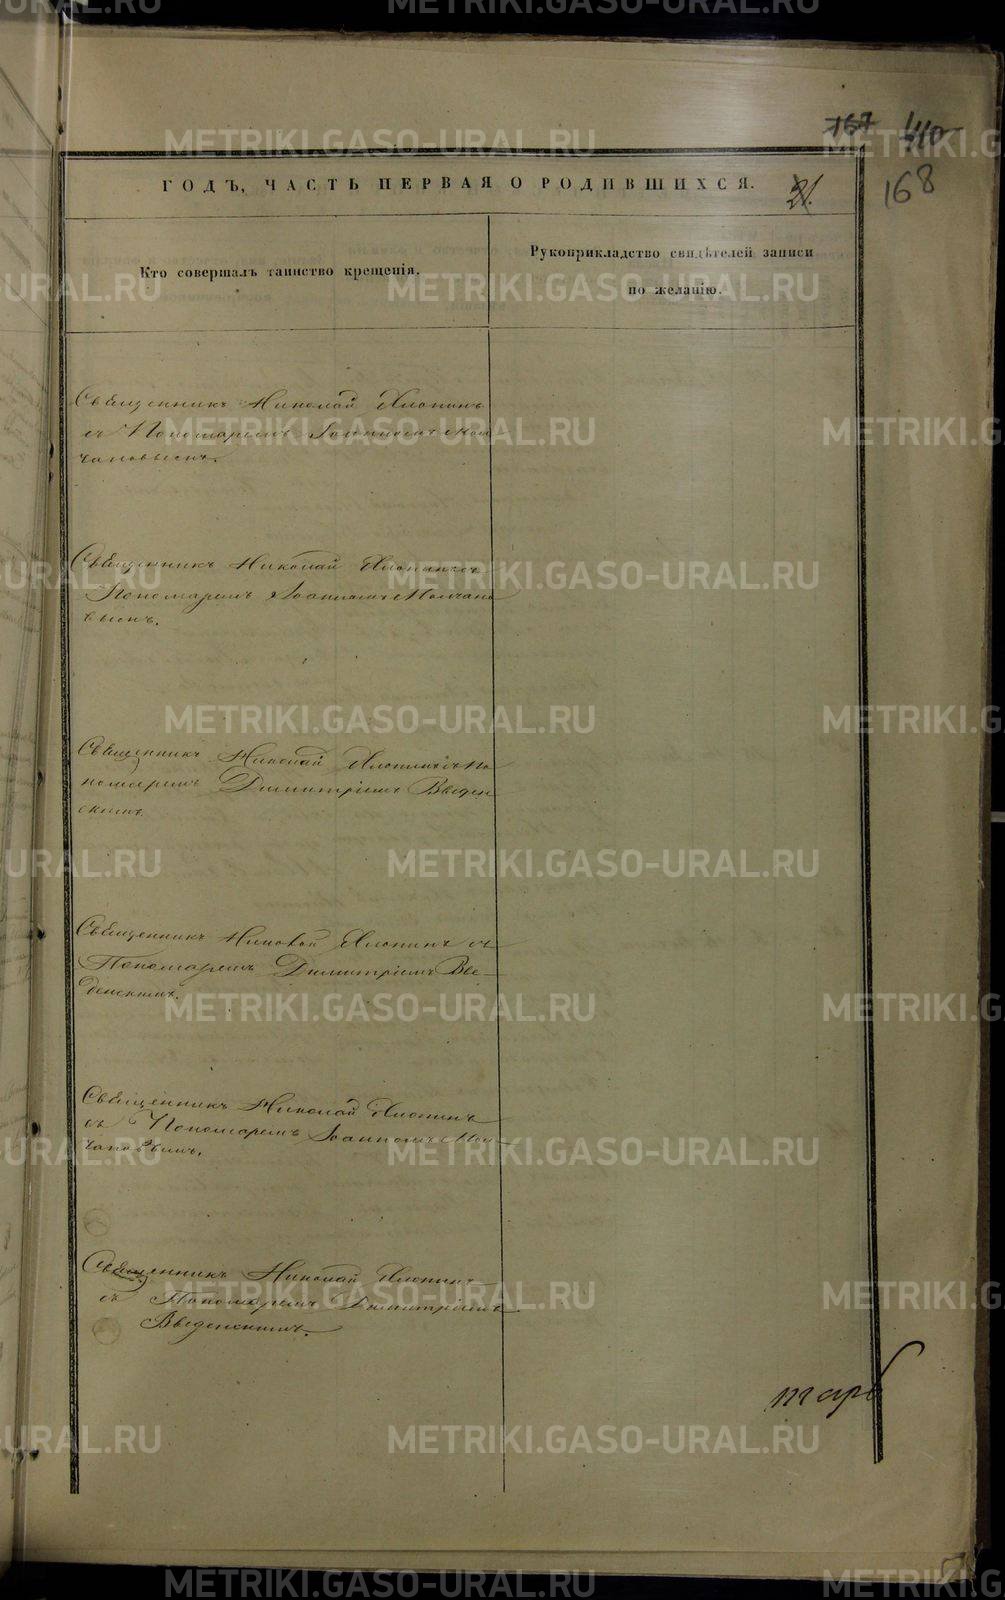 METRIKI.GASO-URAL.RU
167 110
168
ГОДЪ, ЧАСТЬ ПЕРВАЯ О РОДИВШИХСЯ. 21.
Кто совершалъ таинство крещенія.
Рукоприкладство свидѣтелей записи
по желанію.
Священникъ Николай Хлопинъ
съ Пономаремъ Іоанномъ Мол
чановымъ.
Священникъ Николай Хлопинъ съ
Пономаремъ Іоанномъ Молчано
вымъ.
Священникъ Николай Хлопинъ съ По
номаремъ Димитріемъ Введен
скимъ.
Священникъ Николай Хлопинъ съ
Пономаремъ Димитріемъ Вве-
денскимъ.
Священникъ Николай Хлопинъ
съ Пономаремъ Іоанномъ Мол
чановымъ.
Священникъ Николай Хлопинъ
съ Пономаремъ Димитріемъ
Введенскимъ.